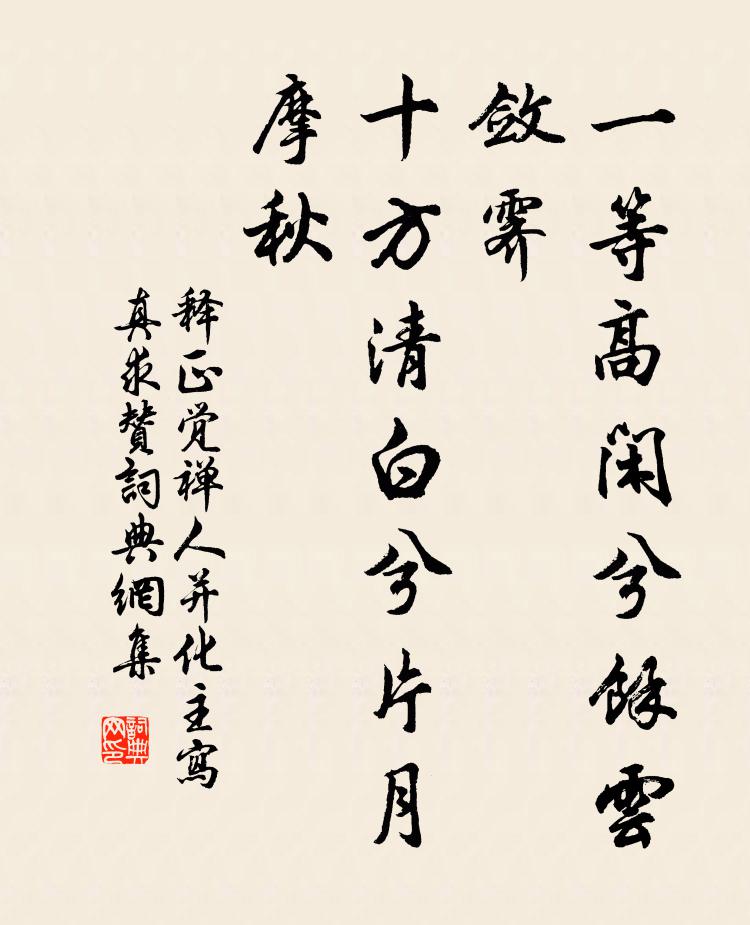 一等高閑兮餘雲
斂霁
十方清白兮片月
摩秋
释正觉禅人并化主寫
真求贊詞典網集
詞典
网印